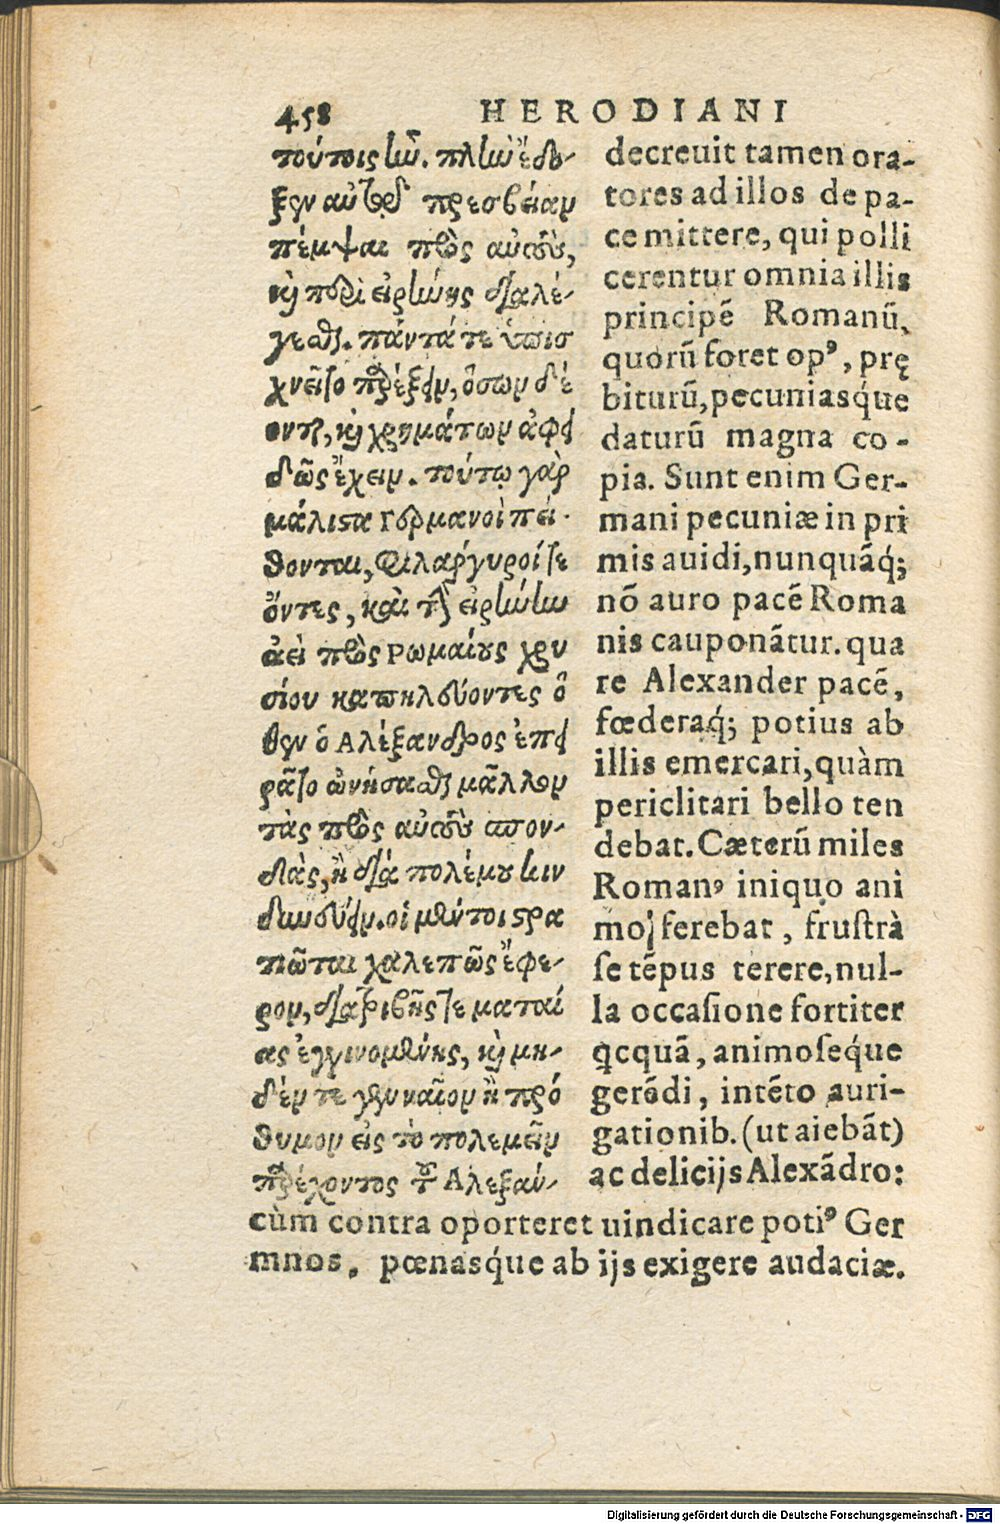 458 HERODIANI
τούτοις ἦν. πλὴν ἔδο-
ξεν αὐτῷ πρεσβείαν
πέμψαι πρὸς αὐτοὺς,
καὶ περὶ εἰρήνης διαλέ-
γεσθαι. πάντά τε ὑπισ
χνεῖτο παρέξειν, ὅσων δέ
ονται, καὶ χρημάτων ἀφει
δῶς ἔχειν. τούτῳ γὰρ
μάλιστα Γερμανοὶ πεί-
θονται, φιλάργυροί τε
ὄντες, καὶ τὴν εἰρήνην
ἀεὶ πρὸς Ρωμαίους χρυ
σίου καπηλεύοντες ὅ
θεν ὁ Αλέξανδρος ἐπει
ρᾶτο ὠνήσασθαι μᾶλλον
τὰς πρὸς αὐτοὺς σπον-
δὰς, ἢ διὰ πολέμου κιν
δυνεύειν. οἱ μέντοι στρα
τιῶται χαλεπῶς ἔφε-
ρον, διατριβῆς τε ματαί
ας ἐγγινομένης, καὶ μη-
δέν τε γενναῖον ἢ πρό
θυμον εἰς τὸ πολεμεῖν
παρέχοντος τοῦ Αλεξάν-
decreuit tamen ora-
tores ad illos de pa-
ce mittere, qui polli
cerentur omnia illis
principẽ Romanũ,
quorũ foret opꝰ, prę
biturũ, pecuniasq́ue
daturũ magna co-
pia. Sunt enim Ger-
mani pecuniæ in pri
mis auidi, nunquãq́;
nõ auro pacẽ Roma
nis cauponãtur. qua
re Alexander pacẽ,
fœderaq́; potius ab
illis emercari, quàm
periclitari bello ten
debat. Cæterũ miles
Romanꝰ iniquo ani
mo ferebat, frustrà
se tẽpus terere, nul-
la occasione fortiter
qcquã, animoseq́ue
gerẽdi, intẽto auri-
gationib. (ut aiebãt)
ac delicijs Alexãdro:
cùm contra oporteret uindicare potiꝰ Ger
mnos, pœnasq́ue ab ijs exigere audaciæ.
Digitalisierung gefördert durch die Deutsche Forschungsgemeinschaft - DFG